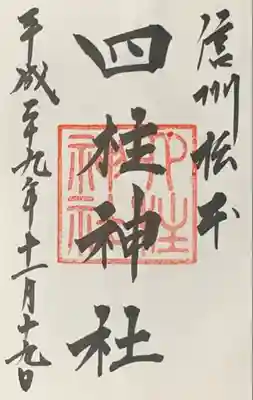 信州松本
四柱神社
四柱神社
平成二十九年十一月十九日